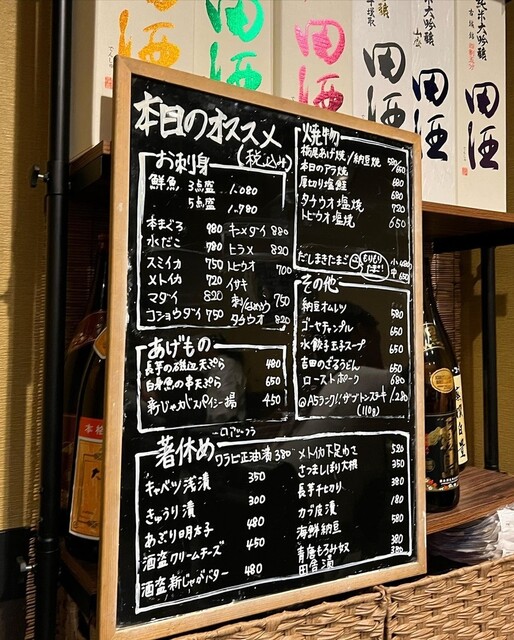 純米大吟醸
純米大吟醸
田酒
田酒
田酒
田酒
田酒
田酒
本日のオススメ
(税込み)
お刺身
鮮魚 3点盛 1.080
5点盛 1.780
本まぐろ 980
水だこ 780
スミイカ 750
メトイカ 720
マダイ 820
コショウダイ 750
キメダイ 880
ヒラメ 820
トビウオ 700
イサキ
刺/なめろう 750
タチウオ 820
あげもの
長芋の磯辺天ぷら 480
白身魚の串天ぷら 650
新じゃがスパイシー揚 450
焼物
栃尾あげ焼/納豆焼 580/650
本日のアラ焼 680
厚切り塩鮭 680
タチウオ塩焼 720
トビウオ塩焼 650
だしまきたまご 小 480
中 650
その他
納豆オムレツ 580
ゴーヤチャンプル 650
水餃子玉子スープ 650
吉田のざるうどん 650
ローストポーク 680
A5ランク!!ザブトンステーキ 1.280
(110g)
箸休め
ワラビ正油漬 380
キャベツ浅漬 350
きゅうり漬 300
あぶり明太子 480
酒盗クリームチーズ 450
酒盗新じゃがバター 480
メトイカ下足わさ 520
さつましぼり大根 350
長芋千切り 380
カブ皮漬 180
海鮮納豆 580
青唐もろみ奴 380
田舎漬 380